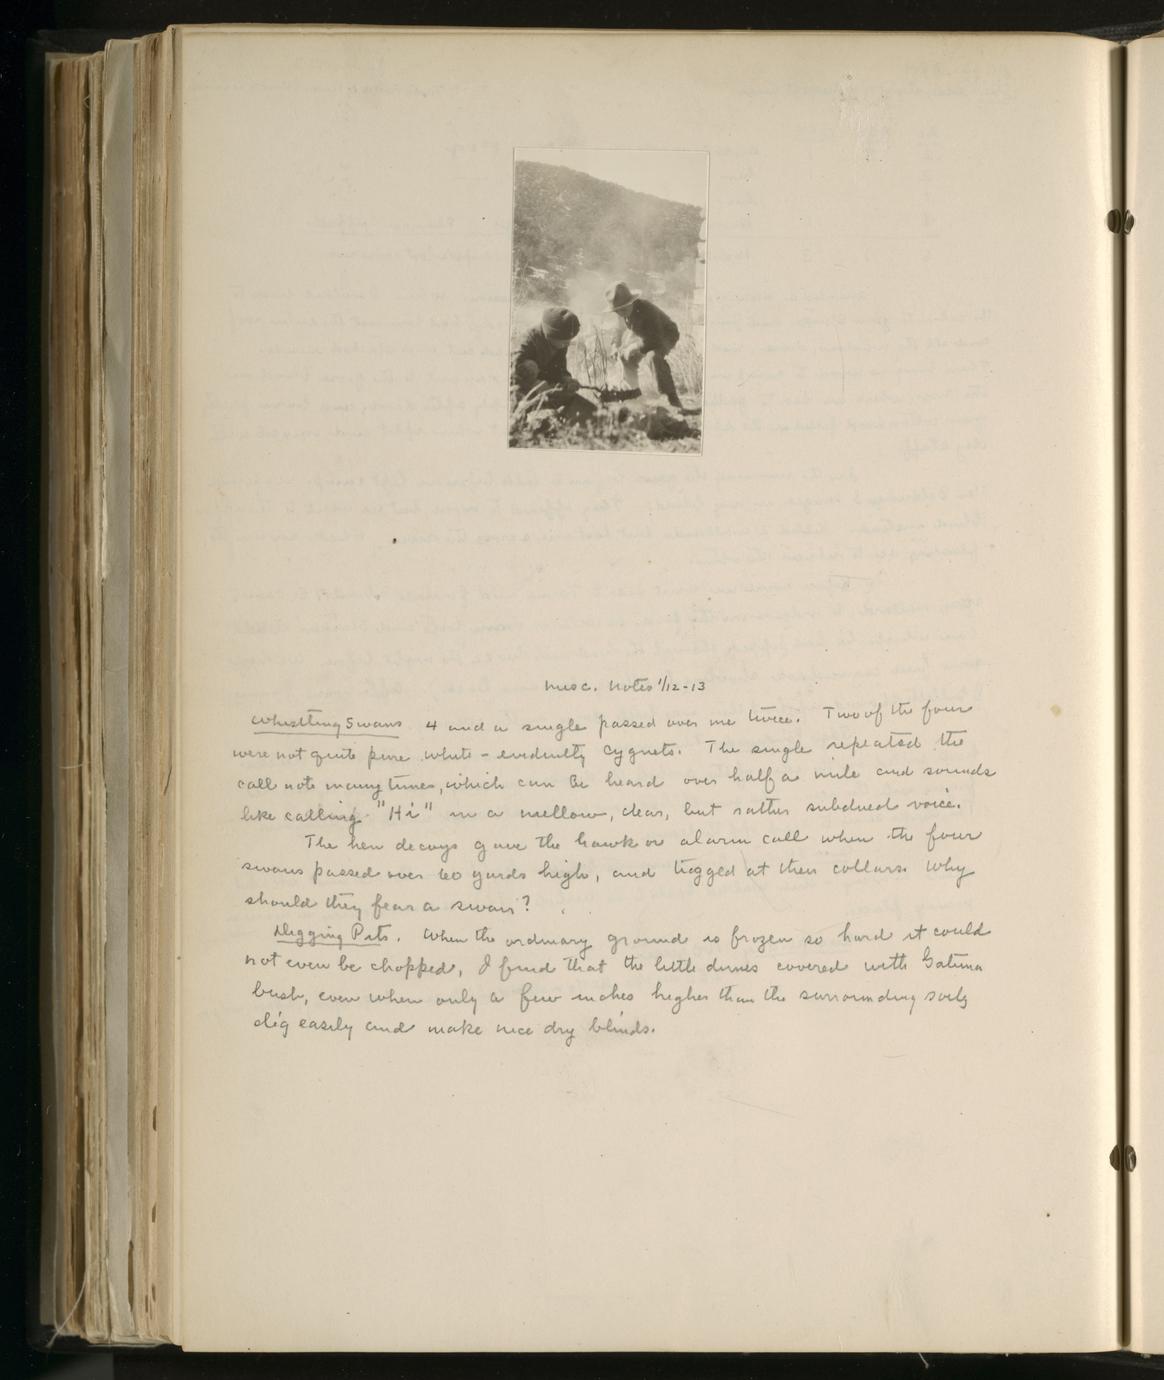 Misc. Notes 1/12-13
Whistling Swans 4 and a single passed over me twice. Two of the four
were not quite pure white - evidently cygnets. The single repeated the
call note many times, which can be heard over half a mile and sounds
like calling "Hi" in a mellow, clear, but rather subdued voice.
The hen decoys gave the hawk or alarm call when the four
swans passed over 60 yards high, and tugged at their collars. Why
should they fear a swan?
Digging Pits. When the ordinary ground is frozen so hard it could
not even be chopped, I find that the little dunes covered with
bush, even when only a few inches higher than the surrounding soil,
dig easily and make nice dry blinds.